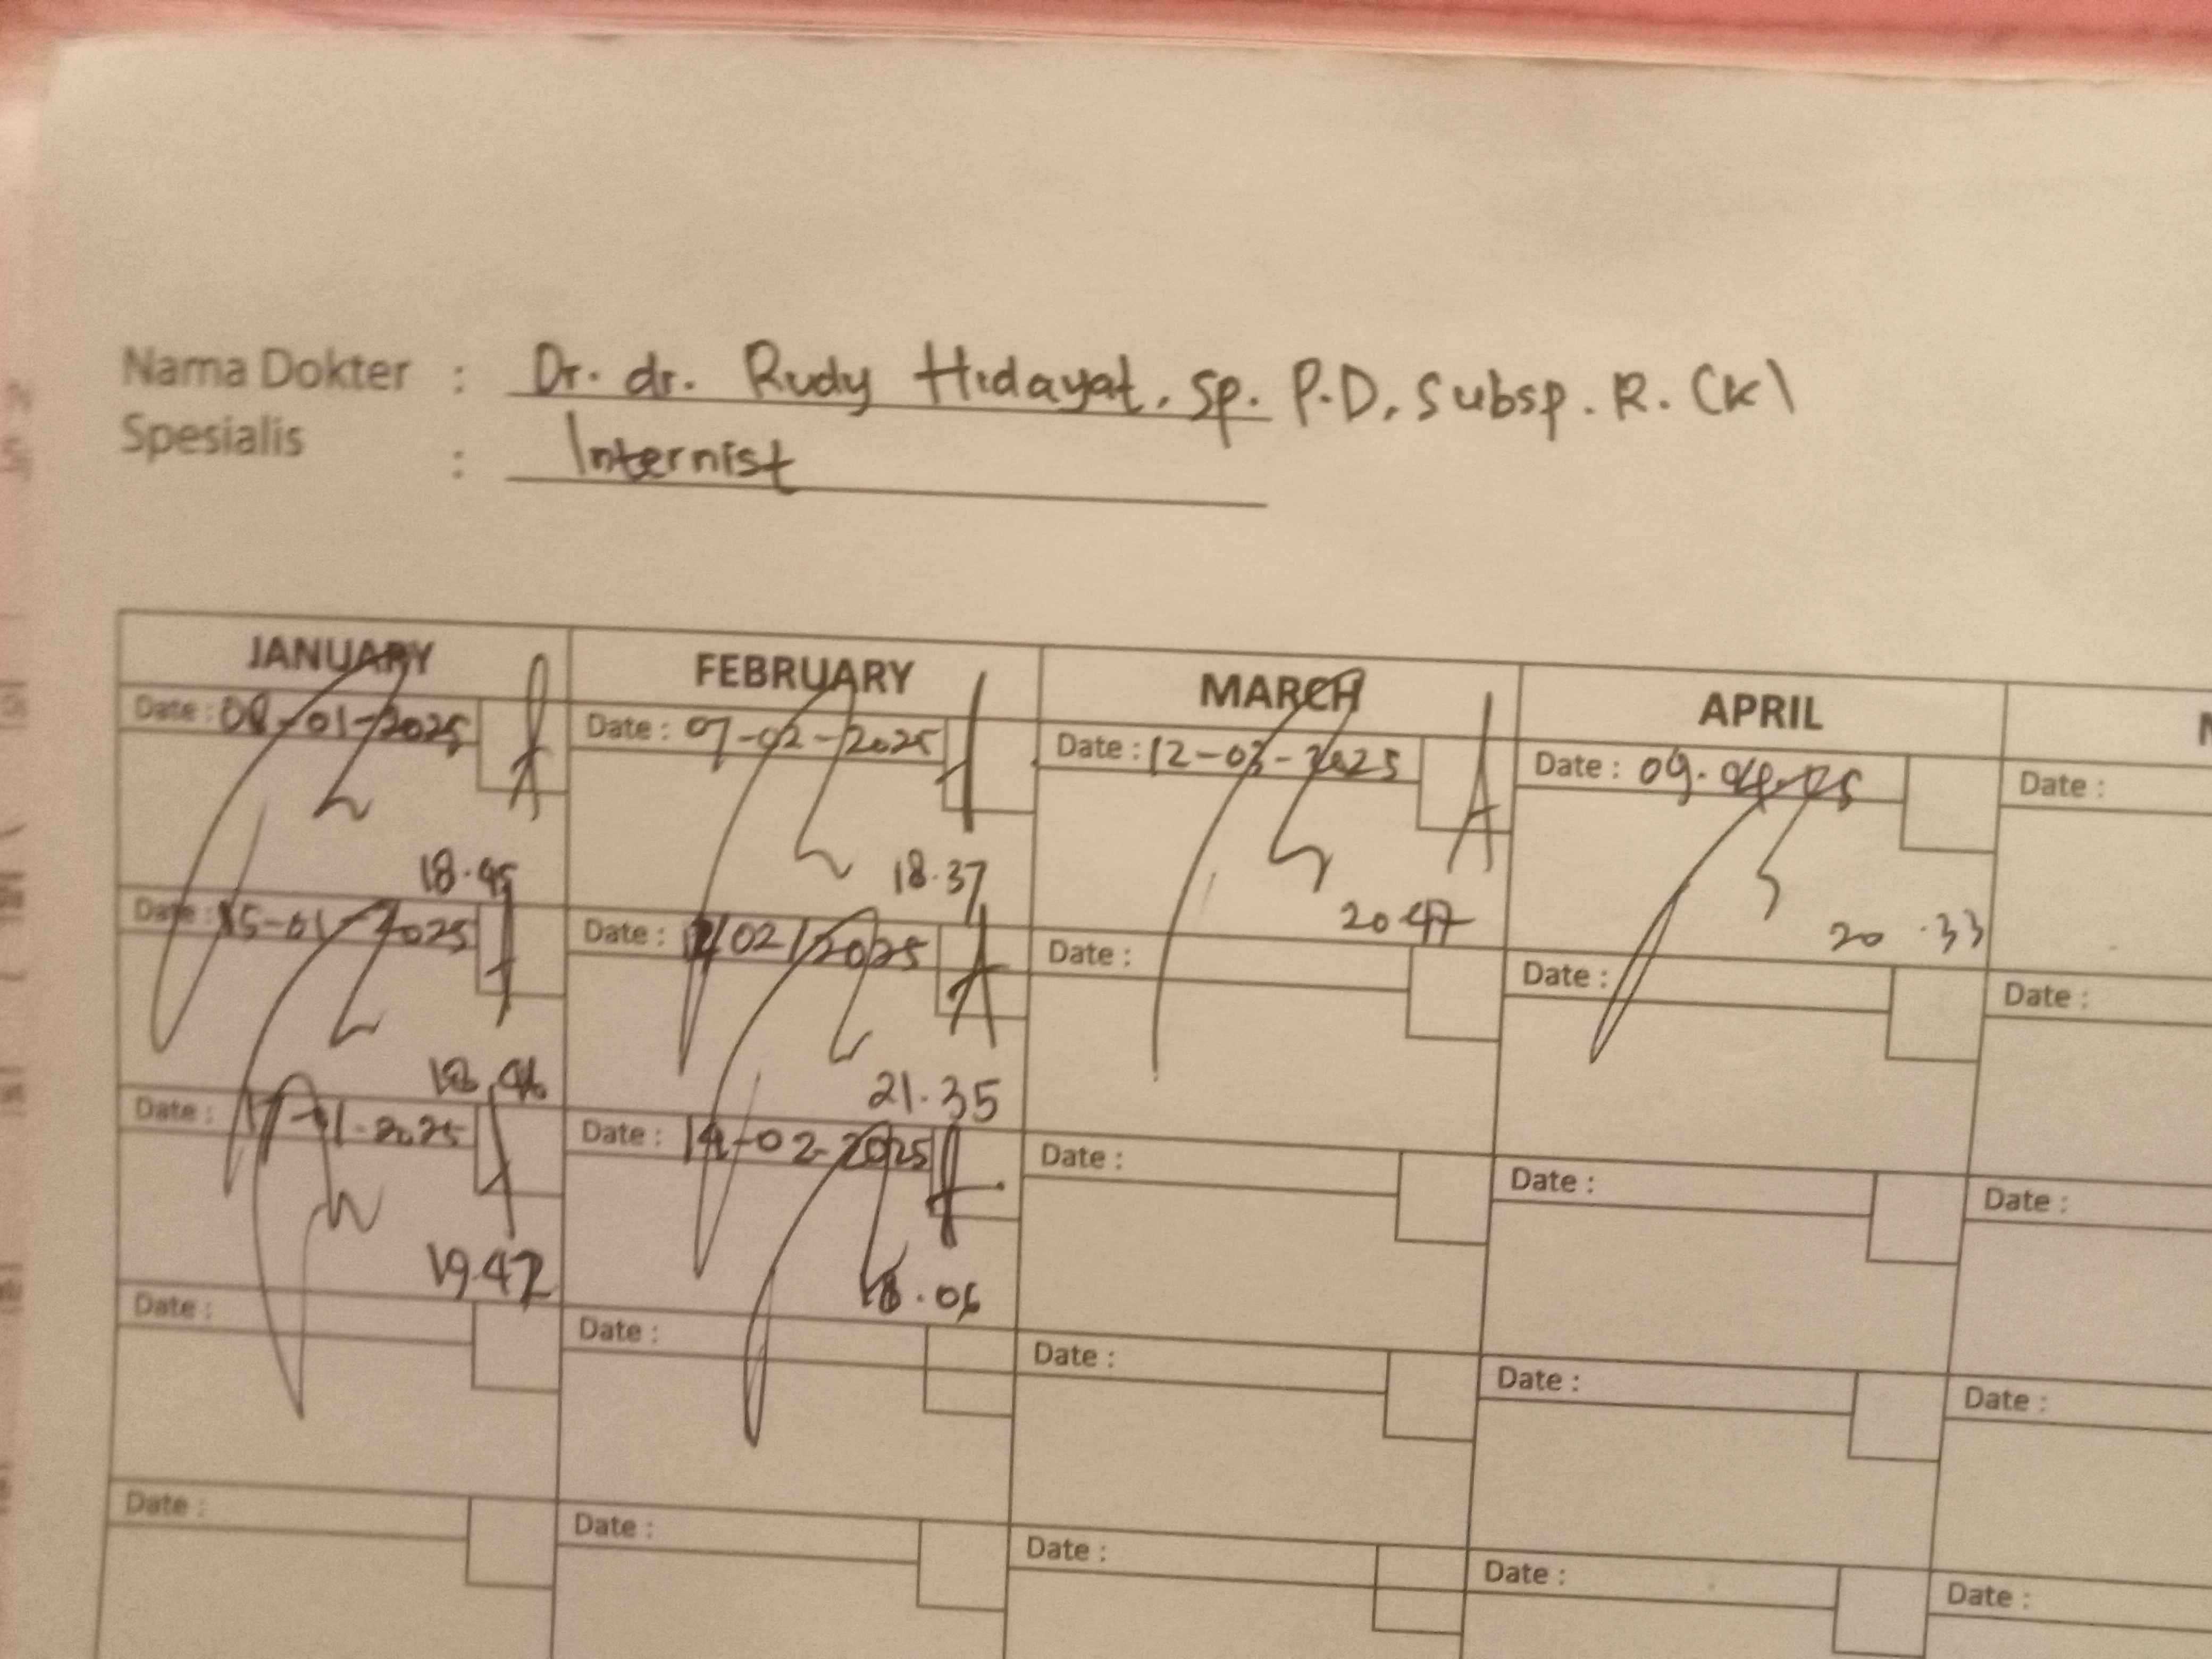 Nama Dokter : Dr. dr. Rudy Hidayat. Sp. P.D, Subsp. R. (K)
Spesialis : Internist
JANUARY FEBRUARY MARCH APRIL
Date : 08-01-2025 Date : 07-02-2025 Date : 12-03-2025 Date : 09.04.25 Date :
18.45 18.37 20.47 20.33
Date : 15-01-2025 Date : /02/2025 Date : Date : Date :
18.46 21.35
Date : 17-01-2025 Date : 14-02-2025 Date : Date : Date :
19.42 18.06
Date : Date : Date : Date : Date :
Date : Date : Date : Date : Date :